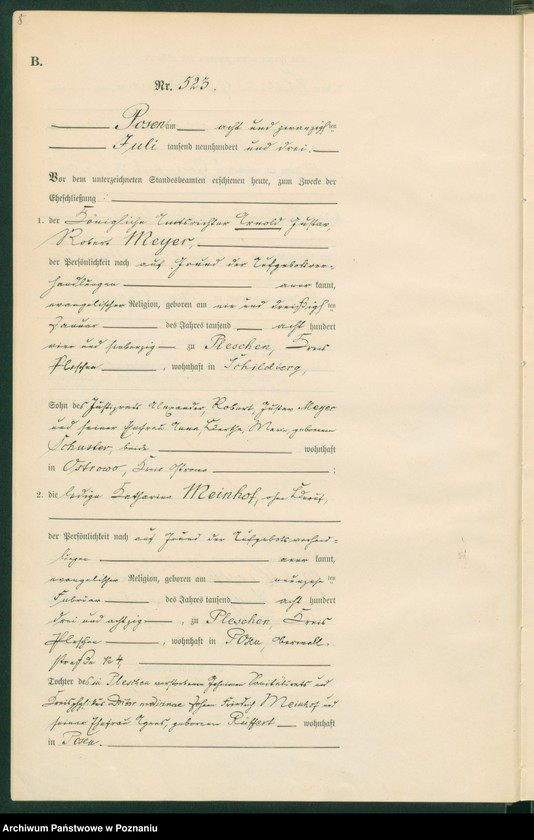 8
B.
Nr. 523.
Posen am acht und zwanzigsten
Juli tausend neunhundert und drei.
Vor dem unterzeichneten Standesbeamten erschienen heute, zum Zwecke der
Eheschließung:
1. der Königliche Amtsrichter Arnold, Gustav,
Robert Meyer,
der Persönlichkeit nach auf Grund der Aufgebotsver-
handlungen anerkannt,
evangelischer Religion, geboren am ein und dreißigsten
Januar des Jahres tausend acht hundert
vier und siebenzig zu Pleschen, Kreis
Pleschen, wohnhaft in Schildberg,
Sohn des Justizrats Alexander, Robert, Gustav Meyer
und seiner Ehefrau Anna, Bertha, Maria, geborenen
Schuster, beide wohnhaft
in Ostrowo, Kreis Ostrowo;
2. die ledige Katharina Meinhof, ohne Beruf,
der Persönlichkeit nach auf Grund der Aufgebotsverhand-
lungen anerkannt,
evangelischer Religion, geboren am neunzehnten
Februar des Jahres tausend acht hundert
drei und achtzig, zu Pleschen, Kreis
Pleschen, wohnhaft in Posen,
straße No 4,
Tochter des in Pleschen verstorbenen Geheimen Sanitätsrats und
Kreisphysikus Friedrich Meinhof und
seiner Ehefrau Agnes, geborenen wohnhaft
in Posen.
Archiwum Państwowe w Poznaniu